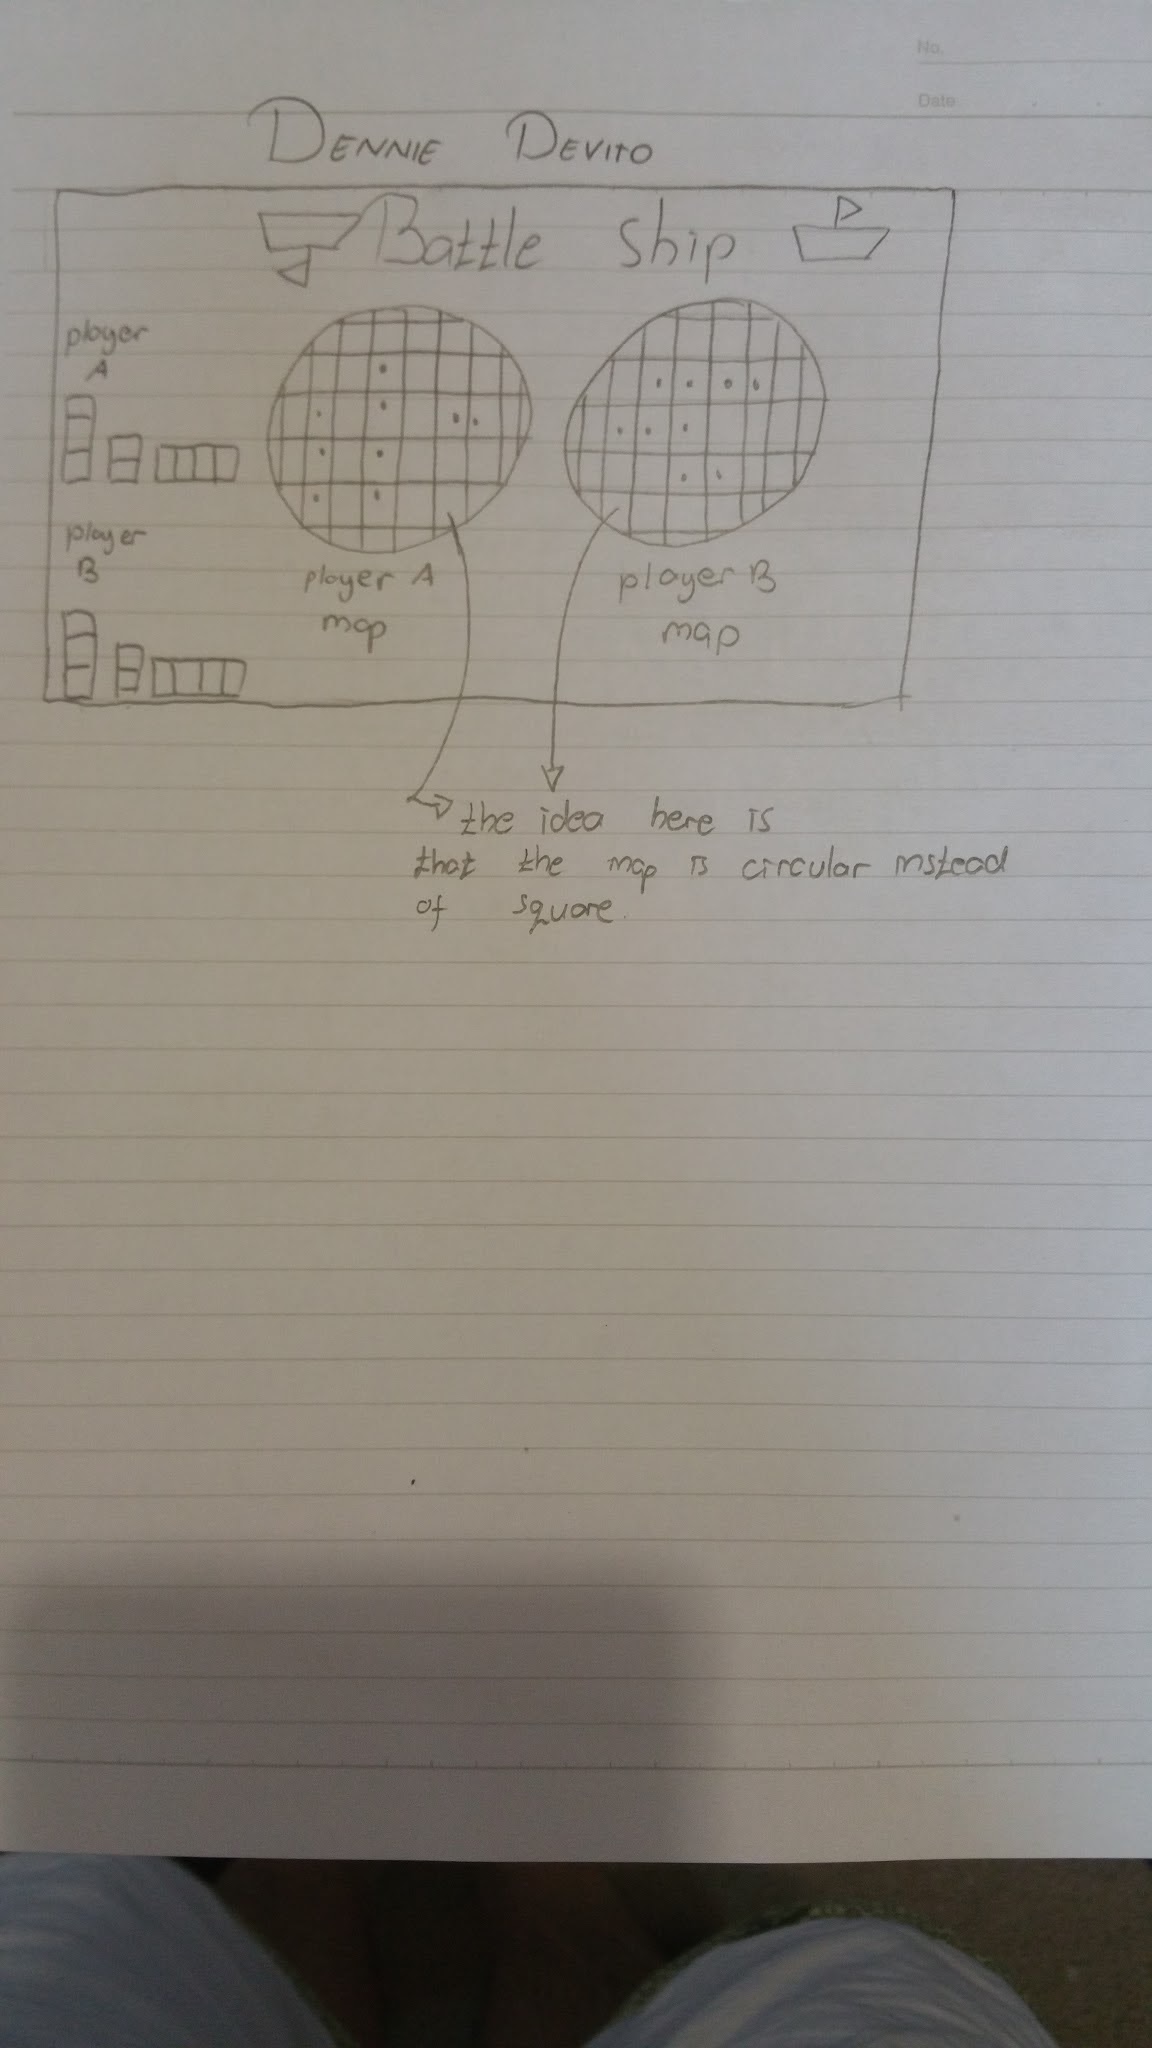 No.
Date
DENNIE DEVITO
Battle Ship
player
A
player
B
player A
map
player B
map
the idea here is
that the map is circular instead
of square.